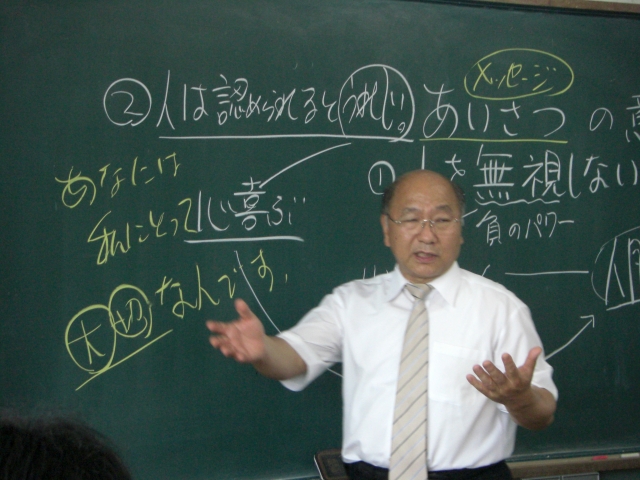 メッセージ
②人は認められるとうれしい。
あいさつの意
①人を無視しない
負のパワー
心喜ぶ
あなたは
私にとって
大切なんです。